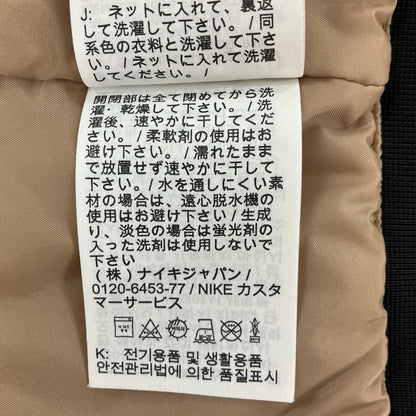 J: ネットに入れて、裏返
して洗濯して下さい。/ 同
系色の衣料と洗濯して下さ
い。/ ネットに入れて洗濯
してください。/
開閉部は全て閉めてから洗
濯・乾燥して下さい。/ 洗
濯後、速やかに干してくだ
さい。/ 柔軟剤の使用はお
避け下さい。/ 濡れたまま
で放置せず速やかに干して
下さい。/ 水を通しにくい素
材の場合は、遠心脱水機の
使用はお避け下さい / 生成
り、淡色の場合は蛍光剤の
入った洗剤は使用しないで
下さい
(株) ナイキジャパン /
0120-6453-77 / NIKE カスタ
マーサービス
K: 전기용품 및 생활용품
안전관리법에 의한 품질표시